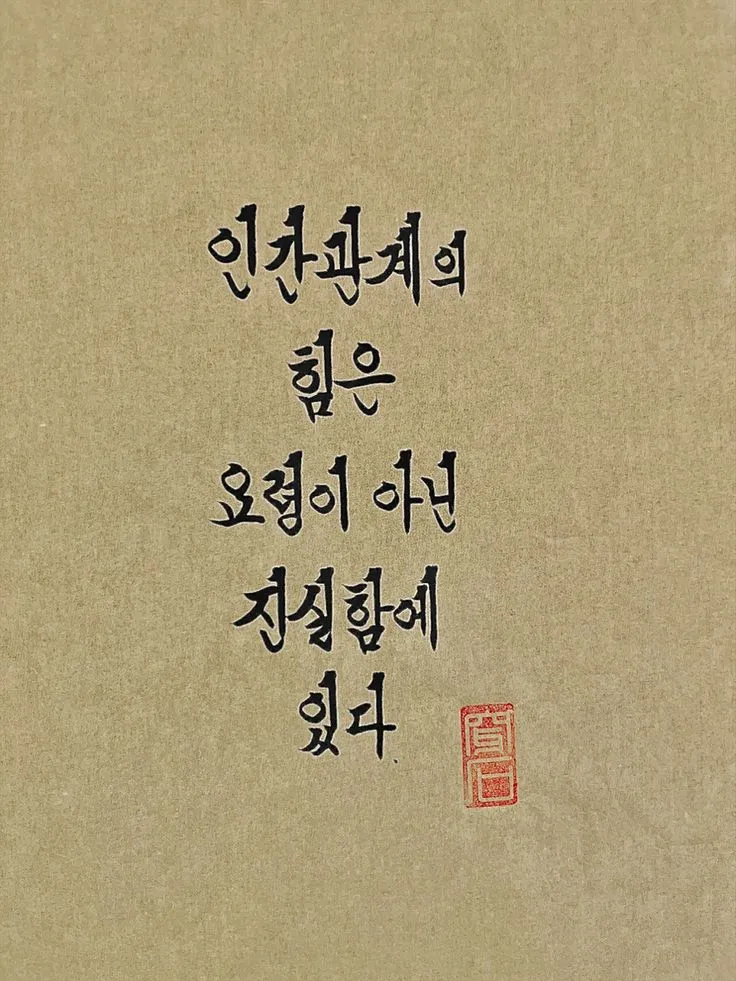 인간관계의
힘은
요령이 아닌
진실함에
있다.